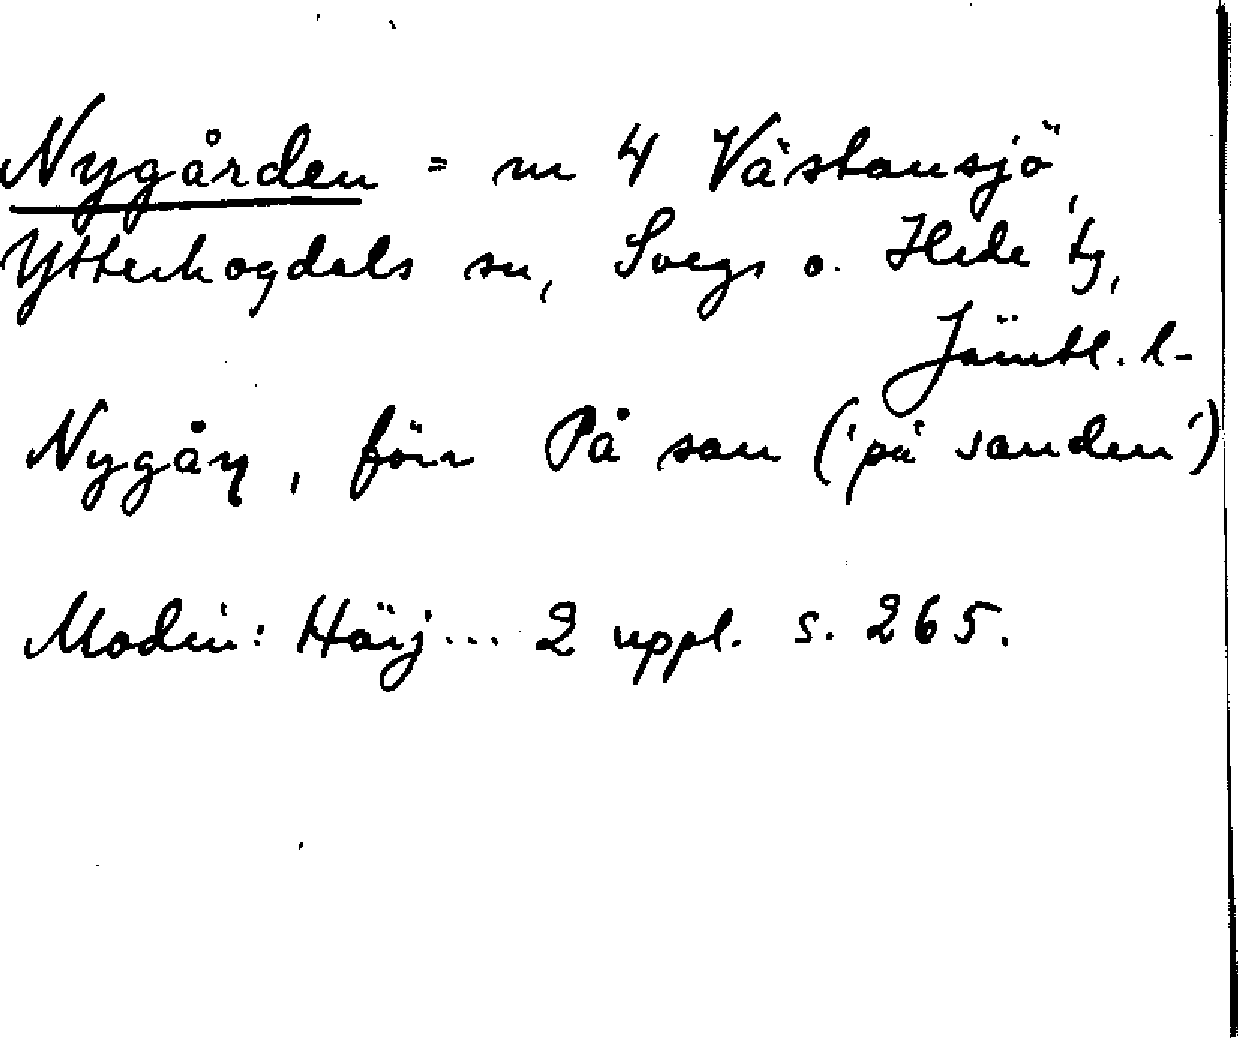 Nygården = nr 4 Västansjö,
Ytterhogdals sn, Svegs o. Hede tg,
Jämtl. l-
Nygåɳ, förr På san ('på sanden')
Modin: Härj... 2 uppl. s. 265.